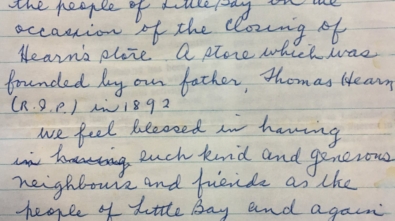 the people of Little Bay on the
occassion of the closing of
Hearn's store. A store which was
founded by our father, Thomas Hearn
(R.I.P.) in 1892
We feel blessed in having
in having such kind and generous
neighbours and friends as the
people of Little Bay and again